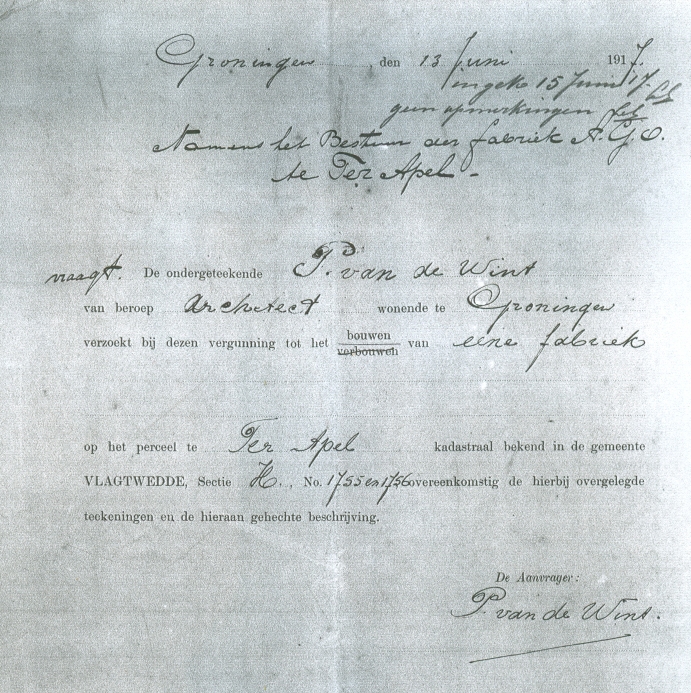 Groningen, den 13 Juni 1917.
ingek 15 Juni 17.
geen opmerkingen
Namens het Bestuur der fabriek A.G.O.
te Ter Apel -
vraagt. De ondergeteekende P. van de Wint
van beroep Architect wonende te Groningen
verzoekt bij dezen vergunning tot het bouwen van eene fabriek
verbouwen
op het perceel te Ter Apel kadastraal bekend in de gemeente
VLAGTWEDDE, Sectie H., No. 1755 en 1756 overeenkomstig de hierbij overgelegde
teekeningen en de hieraan gehechte beschrijving.
De Aanvrager:
P. van de Wint.